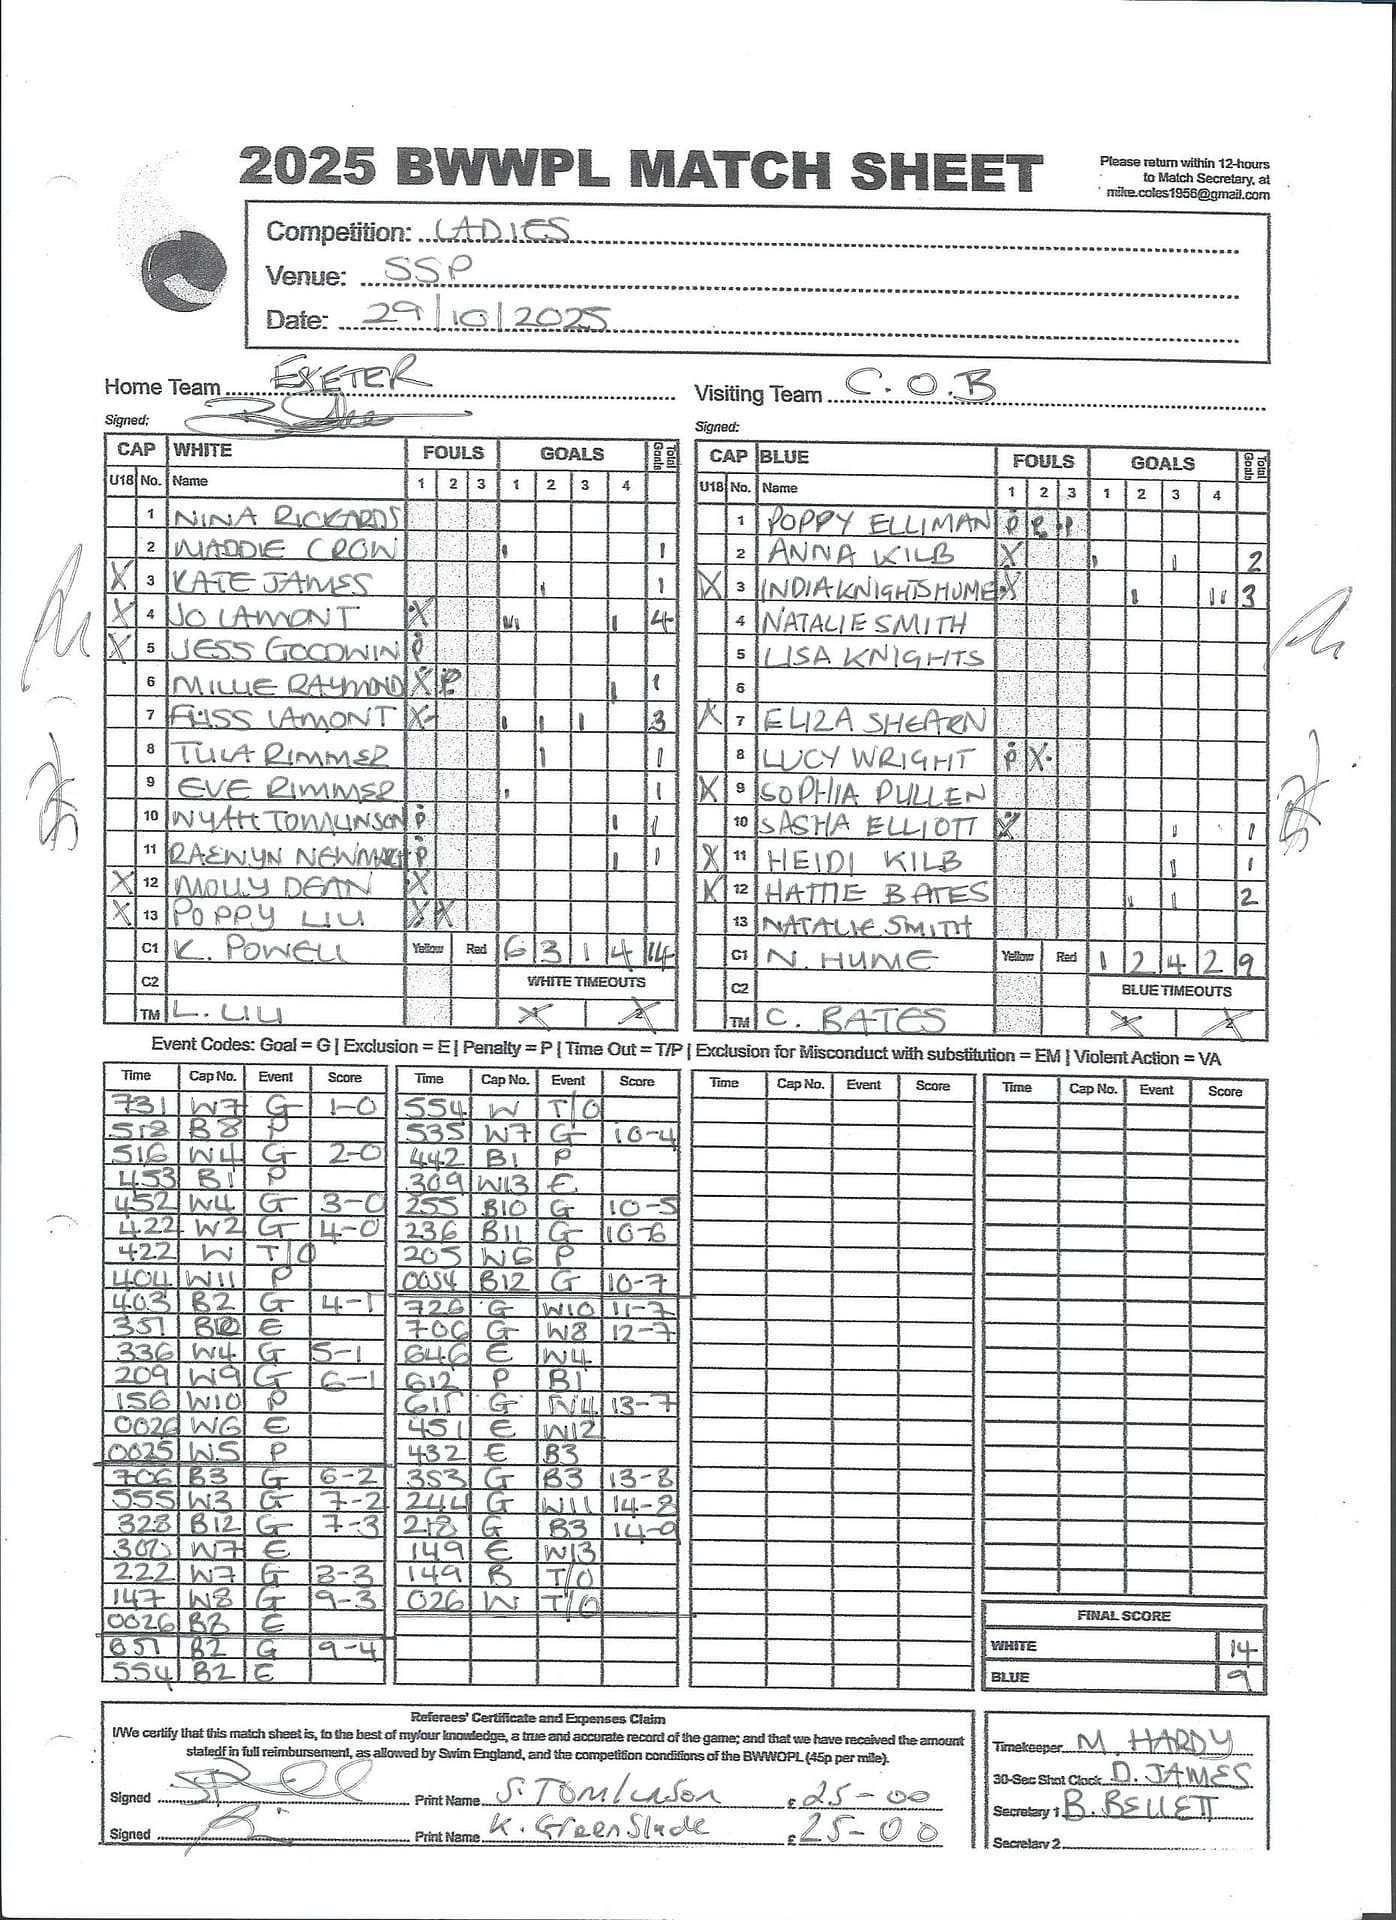 2025 BWWPL MATCH SHEET
Please return within 12-hours
to Match Secretary, at
mike.coles1956@gmail.com
Competition: LADIES
Venue: SSP
Date: 29/10/2025
Home Team EXETER
Visiting Team C.O.B
Signed:
Signed:
CAP WHITE FOULS GOALS Total Goals
U18 No. Name 1 2 3 1 2 3 4
1 NINA RICKARDS
2 MADDIE CROW I 1
X 3 KATE JAMES I 1
X 4 JO LAMONT X III I 4
X 5 JESS GOODWIN P
6 MILLIE RAYMOND X P I 1
7 FLISS LAMONT X I I I 3
8 TULA RIMMER I 1
9 EVE RIMMER I 1
10 WYATT TOMLINSON P I 1
11 RAEWYN P I 1
X 12 MOLLY DEAN X
X 13 POPPY LIU X X
C1 K. POWELL Yellow Red 6 3 1 4 14
C2 WHITE TIMEOUTS
TM L. LIU 1 2
CAP BLUE FOULS GOALS Total Goals
U18 No. Name 1 2 3 1 2 3 4
1 POPPY ELLIMAN P P P
2 ANNA KILB X I I 2
X 3 INDIA KNIGHTSHUME X I II 3
4 NATALIE SMITH
5 LISA KNIGHTS
6
X 7 ELIZA SHEARN
8 LUCY WRIGHT P X
X 9 SOPHIA PULLEN
10 SASHA ELLIOTT X I 1
X 11 HEIDI KILB I 1
X 12 HATTIE BATES I I 2
13 NATALIE SMITH
C1 N. HUME Yellow Red 1 2 4 2 9
C2 BLUE TIMEOUTS
TM C. BATES 1 2
Event Codes: Goal = G | Exclusion = E | Penalty = P | Time Out = T/P | Exclusion for Misconduct with substitution = EM | Violent Action = VA
Time Cap No. Event Score
731 W7 G 1-0
518 B8 P
516 W4 G 2-0
453 B1 P
452 W4 G 3-0
422 W2 G 4-0
422 W T/O
404 W11 P
403 B2 G 4-1
351 B10 E
336 W4 G 5-1
209 W9 G 6-1
156 W10 P
0026 W6 E
0025 W5 P
706 B3 G 6-2
555 W3 G 7-2
328 B12 G 7-3
300 W7 E
222 W7 G 8-3
147 W8 G 9-3
0026 B8 E
651 B2 G 9-4
554 B2 E
Time Cap No. Event Score
554 W T/O
535 W7 G 10-4
442 B1 P
309 W13 E
255 B10 G 10-5
236 B11 G 10-6
205 W6 P
0054 B12 G 10-7
726 G W10 11-7
706 G W8 12-7
646 E W4
612 P B1
611 G W4 13-7
451 E W12
432 E B3
353 G B3 13-8
244 G W11 14-8
218 G B3 14-9
149 E W13
149 B T/O
026 W T/O
Time Cap No. Event Score
Time Cap No. Event Score
FINAL SCORE
WHITE 14
BLUE 9
Referees' Certificate and Expenses Claim
I/We certify that this match sheet is, to the best of my/our knowledge, a true and accurate record of the game; and that we have received the amount
statedf in full reimbursement, as allowed by Swim England, and the competition conditions of the BWWOPL (45p per mile).
Signed Print Name S. Tomlinson £ 25-00
Signed Print Name K. Greenslade £ 25-00
Timekeeper M. HARDY
30-Sec Shot Clock D. JAMES
Secretary 1 B. BELLETT
Secretary 2